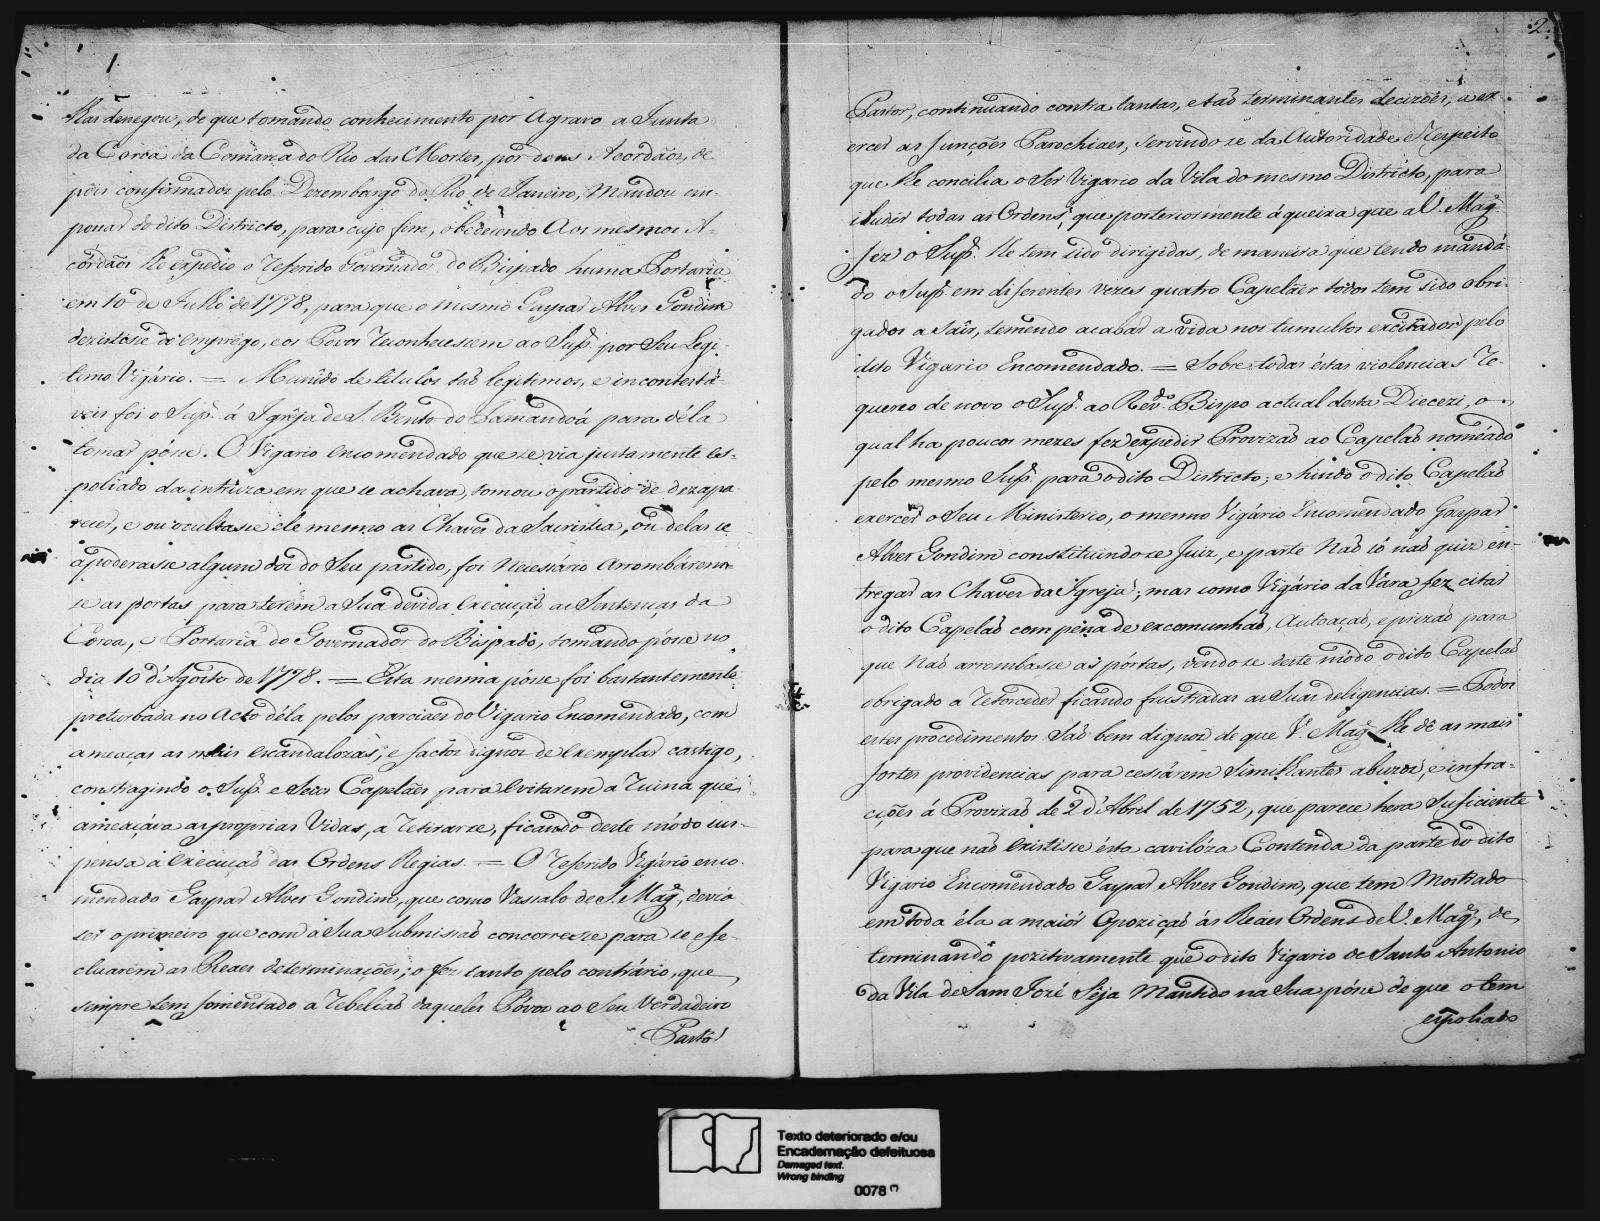 1.
lhas denegou, de que tomando conhecimento por Agravo a Junta
da Coroa da Comarca do Rio das Mortes, por dous Acordãos, de-
pois confirmados pelo Dezembargo do Rio de Janeiro, Mandou em-
penar do dito Districto, para cujo fim, obedecendo Aos mesmos A-
córdãos lhe expedio o referido Governador do Bispado huma Portaria
em 10 de Julho de 1778, para que o mesmo Gaspar Alves Gondim
dezistisse do emprêgo, e os Povos reconhecessem ao Supe. por Seu Legi-
timo Vigário. = Munido de titulos tão legitimos, e incontestá-
veis foi o Supe. á Igreja de S. Bento do Tamanduá para déla
tomar pósse. O Vigario encomendado que se via justamente es-
poliado da intruza em que se achava, tomou o partido de dezapa-
recer, e ou ocultasse ele mesmo as Chaves da Sacristia, ou delas se
apoderasse algum dos do Seu partido, foi Necessário Arrombárem-
se as portas para terem a Sua devida execução as Sentenças da
Coroa, e Portaria do Governador do Bispado, tomando pósse no
dia 10 d'Agosto de 1778. = Esta mesma pósse foi bastantemente
preturbada no Acto déla pelos parciaes do Vigario Encomendado, com
ameaças as mais escandalozas, e factos dignos de exemplar castigo,
constragindo o Supe. e Seus Capelães para evitarem a ruina que
ameaçava as proprias Vidas, a retirarse, ficando deste módo sus-
pensa a execução das Ordens Regias. = O referido Vigário enco-
mendado Gaspar Alves Gondim, que como Vassalo de S. Mage., devia
ser o primeiro que com a Sua Submissão concorresse para se efe-
ctuarem as Reaes determinações; o fez tanto pelo contrário, que
sempre tem fomentado a rebelião daqueles Póvos ao Seu Verdadeiro
Pastor
2.
Pastor, continuando contra tantas, e tão terminantes decizões, a ex-
ercer as funções Parochiaes, servindo se da Autoridade e Respeito
que lhe concilia o Ser Vigario da Vila do mesmo Districto, para
illudir todas as Ordens, que posteriormente á queixa que a V. Mage.
fez o Supe. lhe tem sido dirigidas, de maneira que tendo manda-
do o Supe. em diferentes vezes quatro Capelães todos tem sido obri-
gados a Sair, temendo acabar a vida nos tumultos excitados pelo
dito Vigario Encomendado. = Sobre todas éstas violencias re-
quereo de novo o Supe. ao Revdo. Bispo actual desta Diecezi, o
qual ha poucos mezes fez expedir Provizão ao Capelão nomeádo
pelo mesmo Supe. para o dito Districto; e hindo o dito Capelão
exercer o Seu Ministerio, o mesmo Vigário Encomendado Gaspar
Alves Gondim constituindo se Juiz, e parte Não só não quiz en-
tregar as Chaves da Igreja; mas como Vigário da Vara fez citar
o dito Capelão com pena de excomunhão, Autoação, e prizão para
que Não arrombasse as pórtas, vendo se deste módo o dito Capelão
obrigado a retroceder ficando frustradas as Suas deligencias. = Todos
estes procedimentos São bem dignos de que V. Mage. lhe dê as mais
fortes providencias para cessárem Similhantes abuzos, e infra-
cções á Provizão de 2 d'Abril de 1752, que parece hera Suficiente
para que não existisse ésta cavilóza Contenda da parte do dito
Vigario Encomendado Gaspar Alves Gondim, que tem Mostrado
em toda éla a maiór Opozição ás Reáes Ordens de V. Mage., de-
terminando pozitivamente que o dito Vigario de Santo Antonio
da Vila de Sam Jozé Seja Mantido na Sua pósse de que o tem
espoliado
Texto deteriorado e/ou
Encadernação defeituosa
Damaged text.
Wrong binding
0078